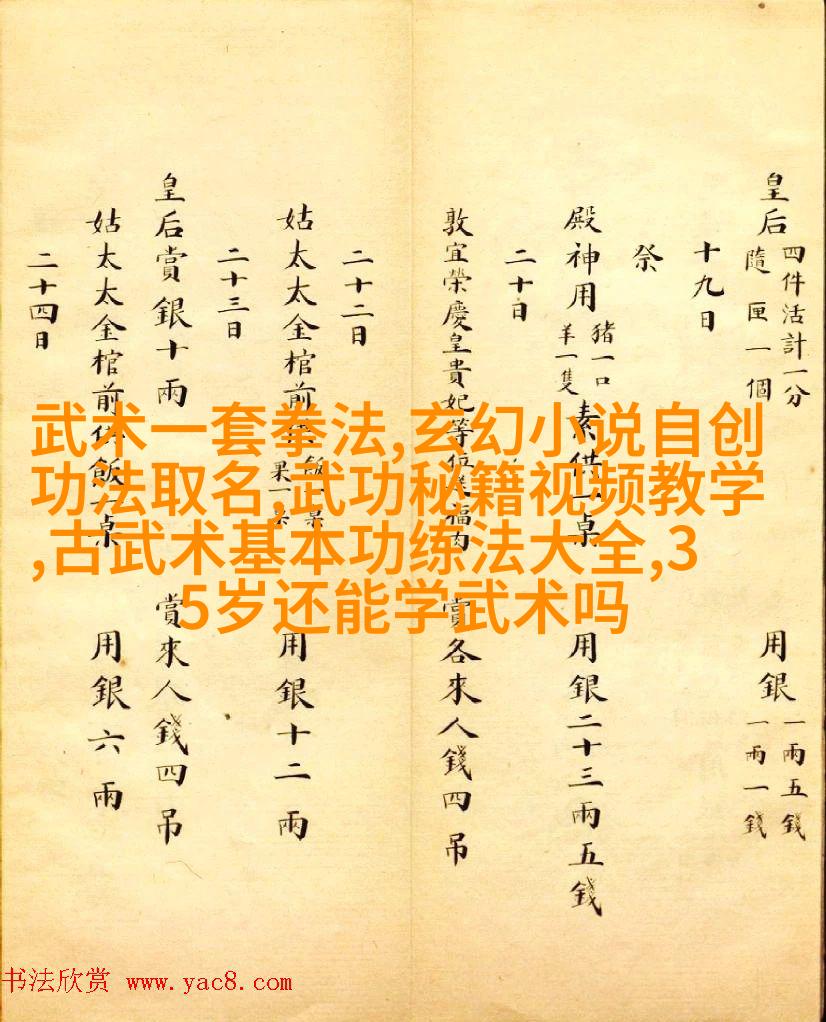 皇后 四件活計一分 用銀 一兩五錢
隨匣一個 一兩一錢
十九日
祭
殿神用 豬一口 羊一隻 素供一桌 用銀二十三兩五錢
二十日
敦宜榮慶皇貴妃等位送福肉 賞各來人錢四吊
二十二日
姑太太金棺前供飯一桌 果一桌 用銀十二兩
二十三日
皇后賞銀十兩 賞來人錢四吊
姑太太金棺前供飯一桌 用銀六兩
二十四日
武术一套拳法,玄幻小说自创
功法取名,武功秘籍视频教学
,古武术基本功练法大全,3
5岁还能学武术吗
书法欣赏 www.yac8.com